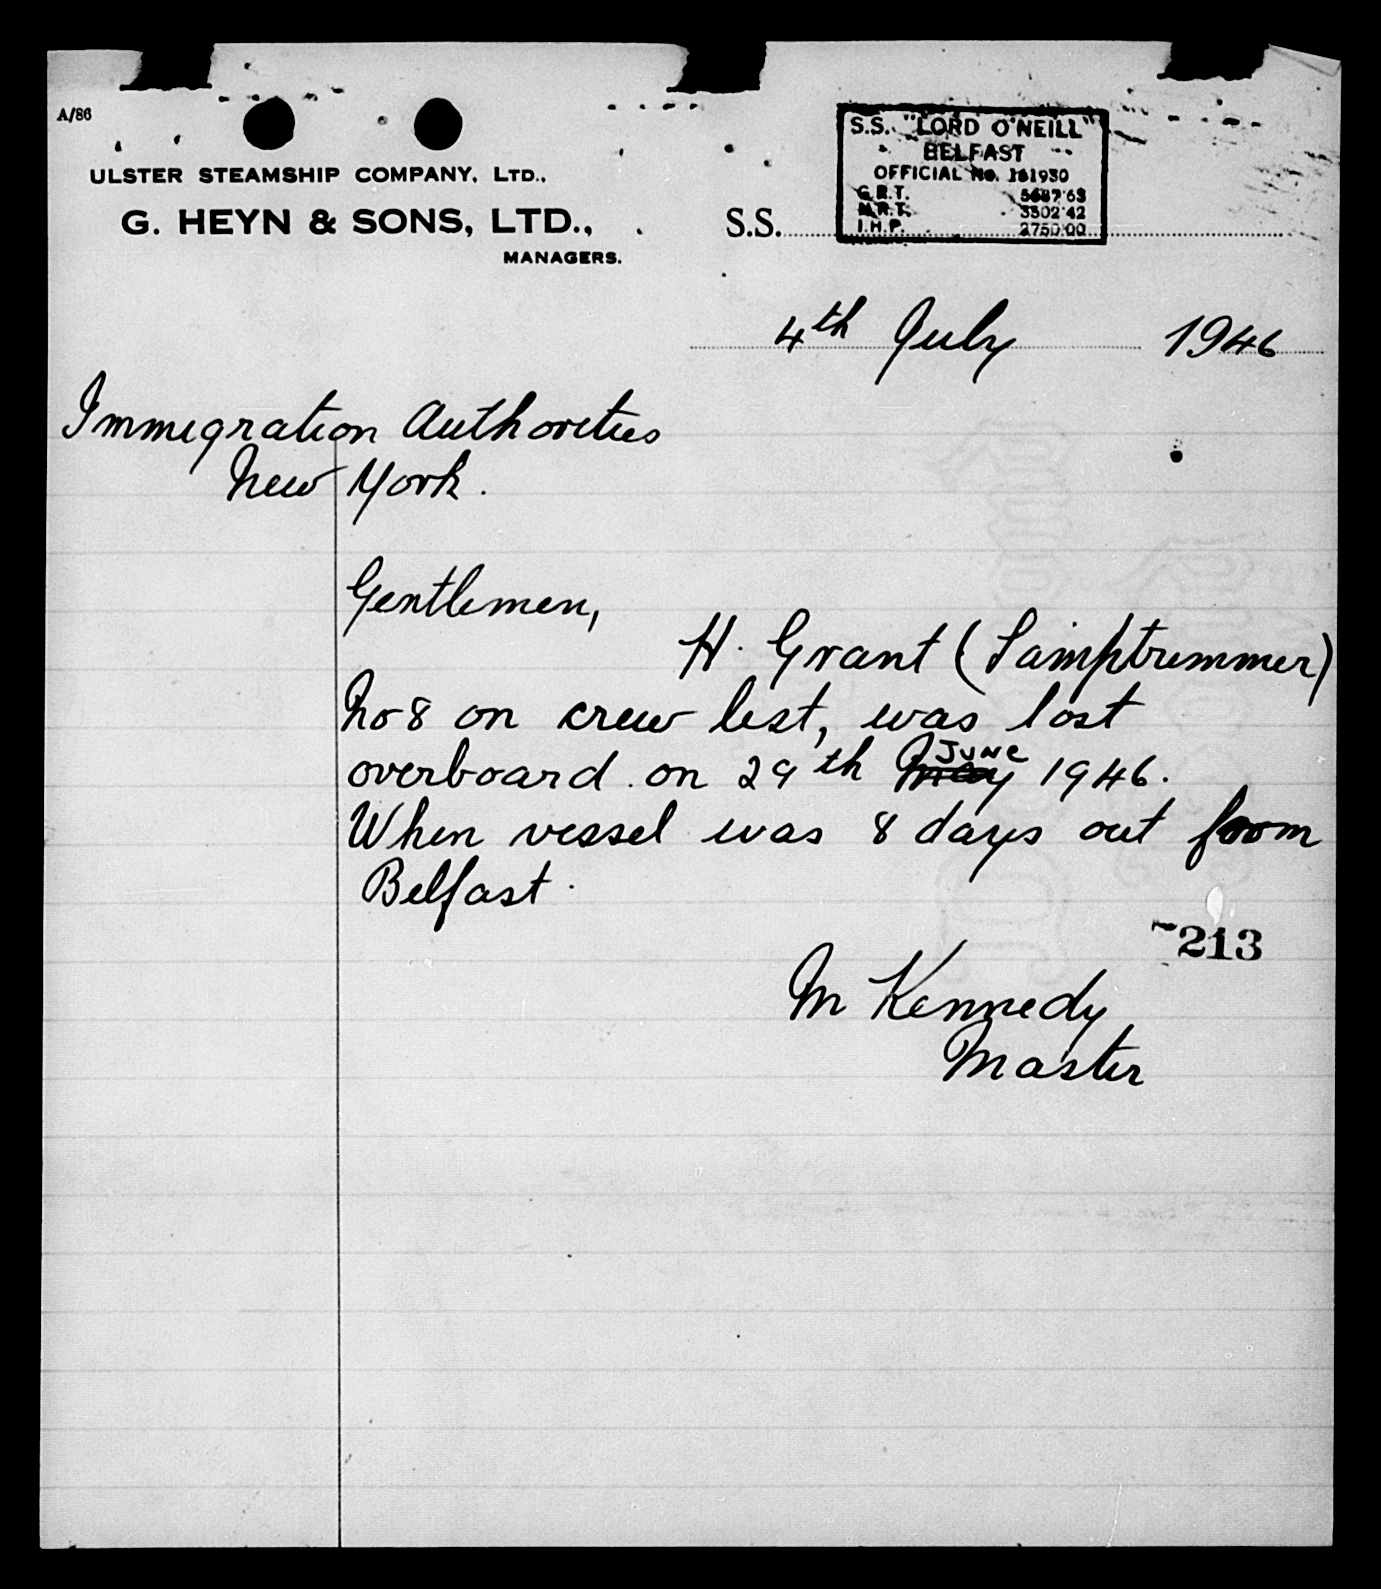 A/86
ULSTER STEAMSHIP COMPANY, LTD.,
G. HEYN & SONS, LTD.,
MANAGERS.
S.S. "LORD O'NEILL"
BELFAST
OFFICIAL No. 161930
G.R.T. 5687.63
N.R.T. 3302.42
I.H.P. 2750.00
S.S.
4th July 1946
Immigration Authorities
New York.
Gentlemen,
H. Grant (Lamptrimmer)
No 8 on crew list, was lost
overboard on 29th May JUNE 1946.
When vessel was 8 days out from
Belfast.
213
M Kennedy
Master